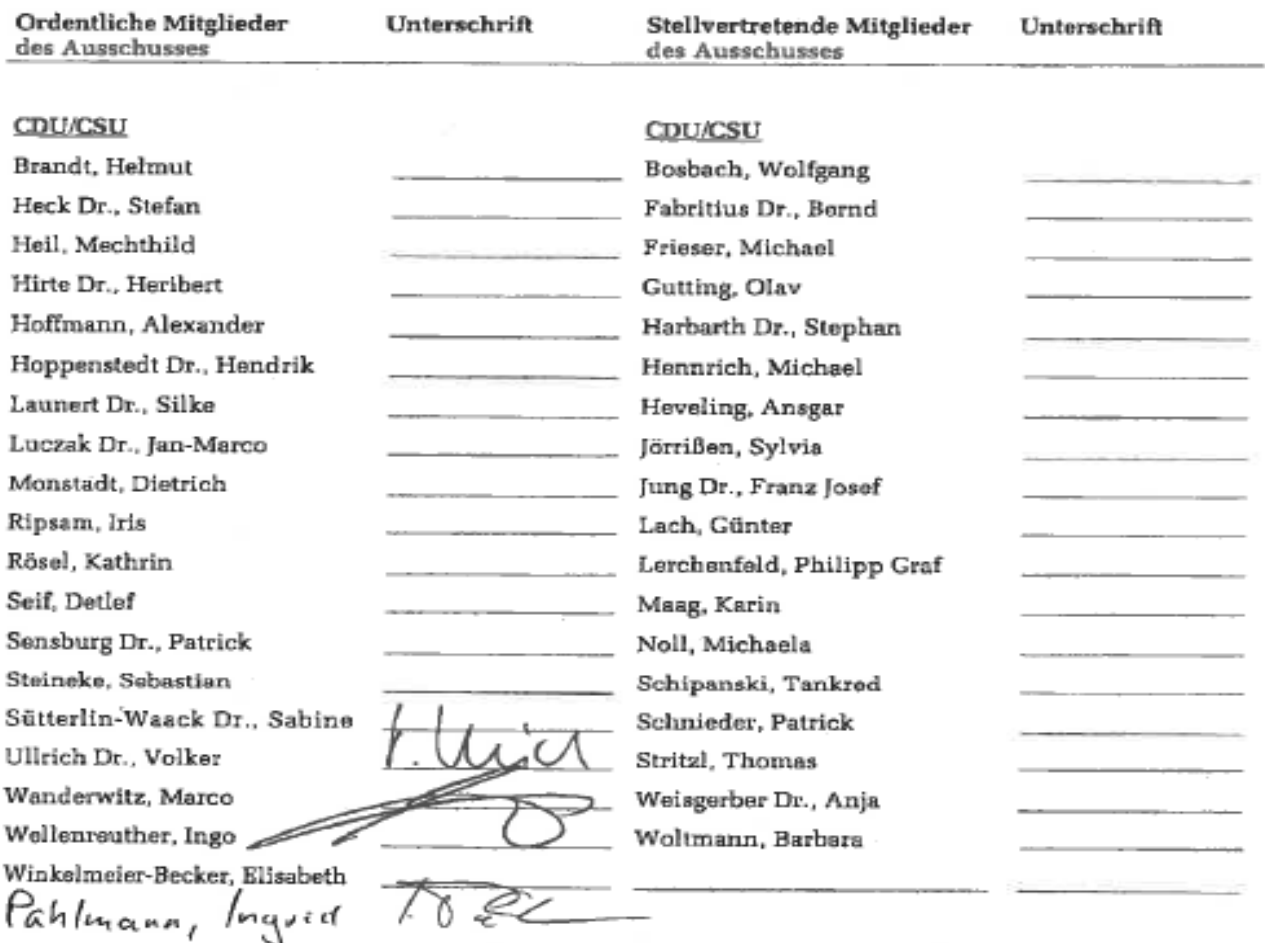 Ordentliche Mitglieder des Ausschusses
Unterschrift
Stellvertretende Mitglieder des Ausschusses
Unterschrift
CDU/CSU
Brandt, Helmut
Heck Dr., Stefan
Heil, Mechthild
Hirte Dr., Heribert
Hoffmann, Alexander
Hoppenstedt Dr., Hendrik
Launert Dr., Silke
Luczak Dr., Jan-Marco
Monstadt, Dietrich
Ripsam, Iris
Rösel, Kathrin
Seif, Detlef
Sensburg Dr., Patrick
Steineke, Sebastian
Sütterlin-Waack Dr., Sabine
Ullrich Dr., Volker
Wanderwitz, Marco
Wellenreuther, Ingo
Winkelmeier-Becker, Elisabeth
Pahlmann, Ingrid
CDU/CSU
Bosbach, Wolfgang
Fabritius Dr., Bernd
Frieser, Michael
Gutting, Olav
Harbarth Dr., Stephan
Hennrich, Michael
Heveling, Ansgar
Jörrißen, Sylvia
Jung Dr., Franz Josef
Lach, Günter
Lerchenfeld, Philipp Graf
Maag, Karin
Noll, Michaela
Schipanski, Tankred
Schnieder, Patrick
Stritzl, Thomas
Weisgerber Dr., Anja
Woltmann, Barbara